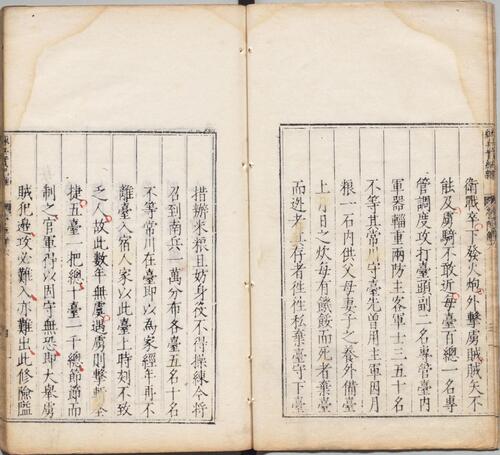 衛戰卒下發火炮外擊虜賊賊矢不
能及虜騎不敢近每臺百總一名專
管調度攻打臺頭副二名專管臺內
軍器輜重兩防主客軍士三五十名
不等其常川守臺先曾用主軍因月
粮一石內供父母妻子之養外備臺
上月日之炊每有饑餒而死者棄臺
而逃者且存者徃徃私棄臺守下臺
措辦米粮且妨身役不得操練今將
召到南兵一萬分布各臺五名十名
不等常川在臺即以為家經年再不
離臺入宿人家以此臺上時刻不致
乏人故此數年無虞遇虜則擊全
捷五臺一把總十臺一千總節節而
制之官軍得以固守無恐即大舉虜
賊犯邊攻必難入亦難出此修險隘